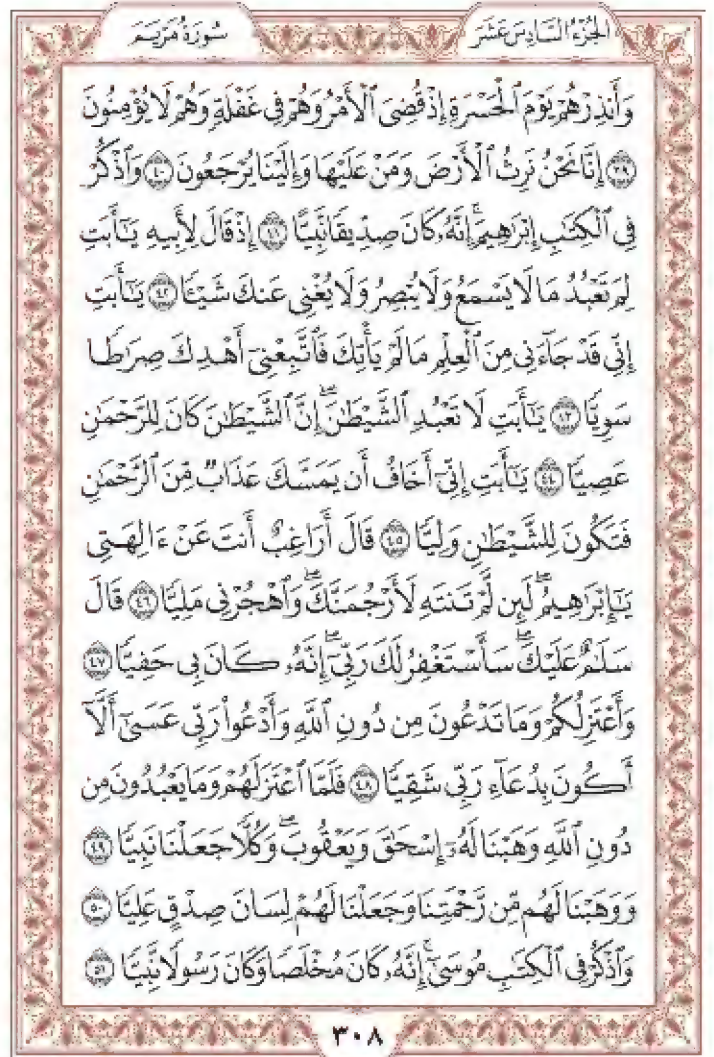 سُورَةُ مَرْيَمَ
الجُزْءُ السَّادِسَ عَشَرَ
وَأَنذِرْهُمْ يَوْمَ ٱلْحَسْرَةِ إِذْ قُضِىَ ٱلْأَمْرُ وَهُمْ فِى غَفْلَةٍ وَهُمْ لَا يُؤْمِنُونَ
٣٩ إِنَّا نَحْنُ نَرِثُ ٱلْأَرْضَ وَمَنْ عَلَيْهَا وَإِلَيْنَا يُرْجَعُونَ ٤٠ وَٱذْكُرْ
فِى ٱلْكِتَٰبِ إِبْرَٰهِيمَ ۚ إِنَّهُۥ كَانَ صِدِّيقًا نَّبِيًّا ٤١ إِذْ قَالَ لِأَبِيهِ يَٰٓأَبَتِ
لِمَ تَعْبُدُ مَا لَا يَسْمَعُ وَلَا يُبْصِرُ وَلَا يُغْنِى عَنكَ شَيْـًٔا ٤٢ يَٰٓأَبَتِ
إِنِّى قَدْ جَآءَنِى مِنَ ٱلْعِلْمِ مَا لَمْ يَأْتِكَ فَٱتَّبِعْنِىٓ أَهْدِكَ صِرَٰطًا
سَوِيًّا ٤٣ يَٰٓأَبَتِ لَا تَعْبُدِ ٱلشَّيْطَٰنَ ۖ إِنَّ ٱلشَّيْطَٰنَ كَانَ لِلرَّحْمَٰنِ
عَصِيًّا ٤٤ يَٰٓأَبَتِ إِنِّىٓ أَخَافُ أَن يَمَسَّكَ عَذَابٌ مِّنَ ٱلرَّحْمَٰنِ
فَتَكُونَ لِلشَّيْطَٰنِ وَلِيًّا ٤٥ قَالَ أَرَاغِبٌ أَنتَ عَنْ ءَالِهَتِى
يَٰٓإِبْرَٰهِيمُ ۖ لَئِن لَّمْ تَنتَهِ لَأَرْجُمَنَّكَ ۖ وَٱهْجُرْنِى مَلِيًّا ٤٦ قَالَ
سَلَٰمٌ عَلَيْكَ ۖ سَأَسْتَغْفِرُ لَكَ رَبِّىٓ ۖ إِنَّهُۥ كَانَ بِى حَفِيًّا ٤٧
وَأَعْتَزِلُكُمْ وَمَا تَدْعُونَ مِن دُونِ ٱللَّهِ وَأَدْعُوا۟ رَبِّى عَسَىٰٓ أَلَّآ
أَكُونَ بِدُعَآءِ رَبِّى شَقِيًّا ٤٨ فَلَمَّا ٱعْتَزَلَهُمْ وَمَا يَعْبُدُونَ مِن
دُونِ ٱللَّهِ وَهَبْنَا لَهُۥٓ إِسْحَٰقَ وَيَعْقُوبَ ۖ وَكُلًّا جَعَلْنَا نَبِيًّا ٤٩
وَوَهَبْنَا لَهُم مِّن رَّحْمَتِنَا وَجَعَلْنَا لَهُمْ لِسَانَ صِدْقٍ عَلِيًّا ٥٠
وَٱذْكُرْ فِى ٱلْكِتَٰبِ مُوسَىٰٓ ۚ إِنَّهُۥ كَانَ مُخْلَصًا وَكَانَ رَسُولًا نَّبِيًّا ٥١
٣٠٨